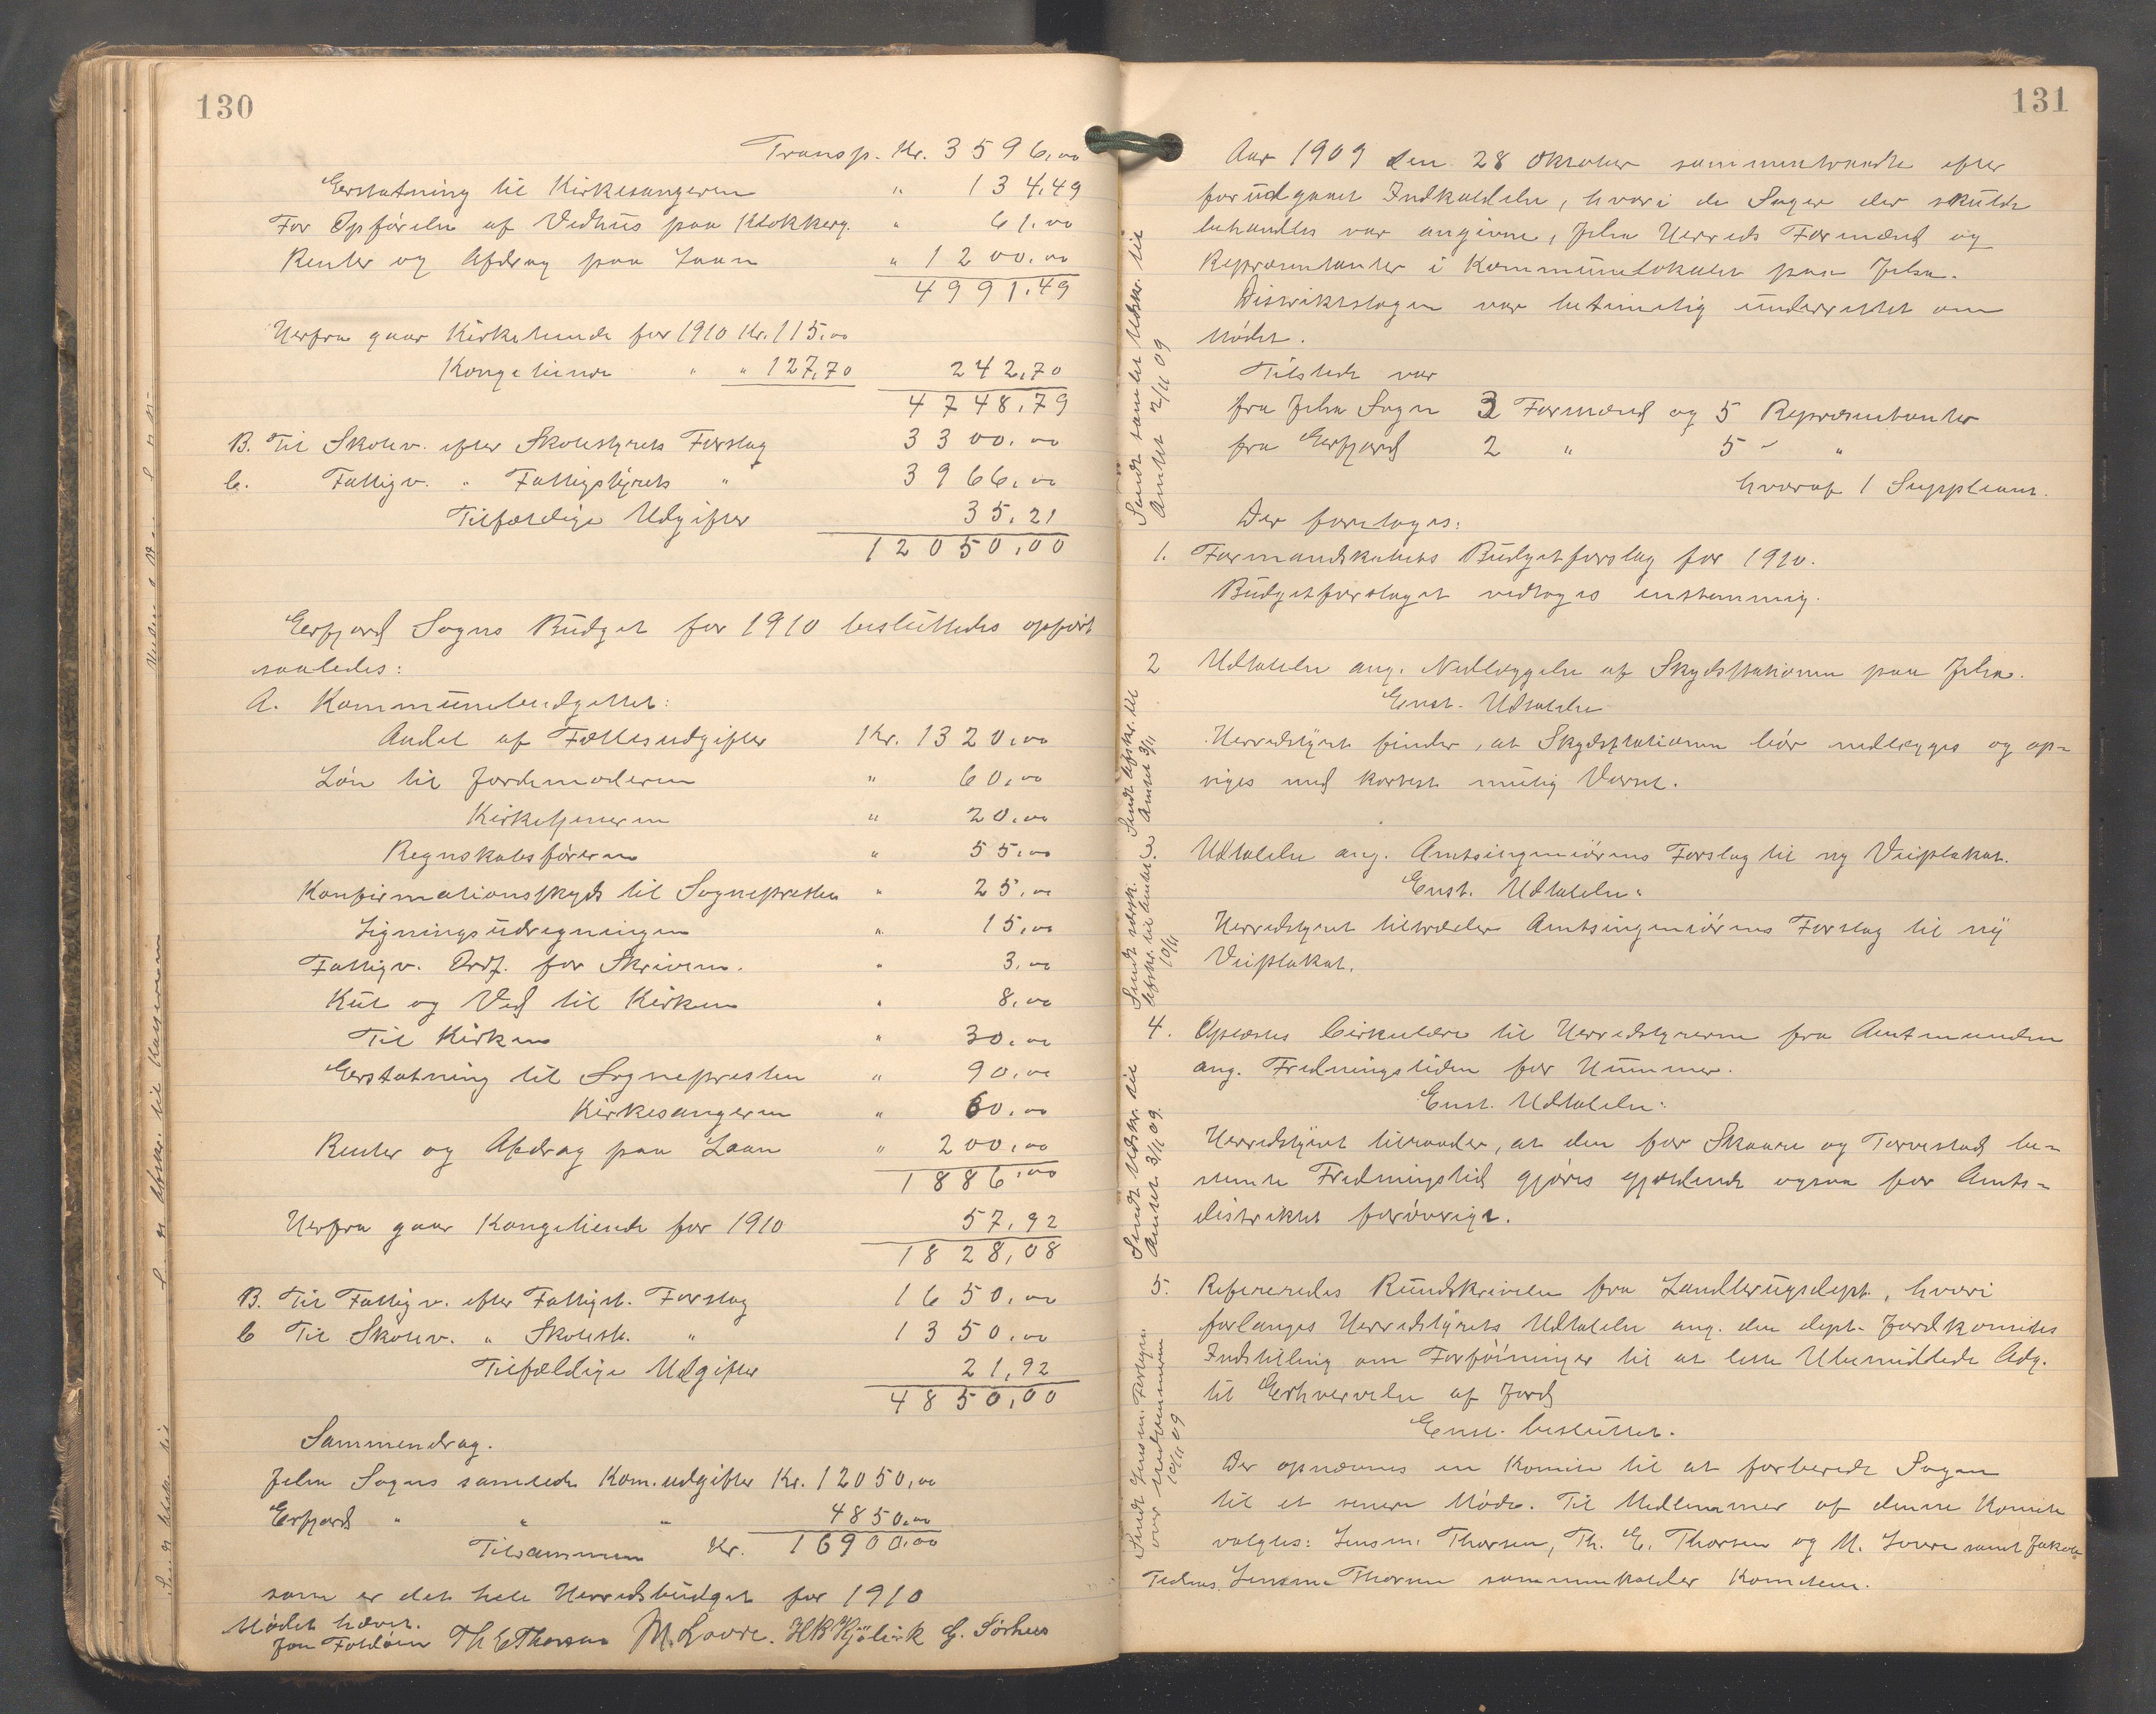 130
Transp. Kr. 3596,00
Erstatning til Kirkesangeren " 134,49
For Opførelse af Vedhus paa Klokkerg. " 61,00
Renter og Afdrag paa Laan " 1200,00
4991,49
Herfra gaar Kirketiende for 1910 Kr. 115,00
Kongetiende " " 127,70 242,70
4748,79
B. Til Skolev. efter Skolestyrets Forslag 3300,00
C. Fattigv. " Fattigstyrets " 3966,00
Tilfældige Udgifter 35,21
12050,00
Erfjord Sogns Budget for 1910 besluttedes opført
saaledes:
A. Kommunebudgettet:
Andel af Fællesudgifter Kr. 1320,00
Løn til Jordemoderen " 60,00
Kirketjeneren " 20,00
Regnskabsføreren " 55,00
Konfirmationsskyds til Sognepresten " 25,00
Ligningsudregningen " 15,00
Fattigv. Ordf. for Skriven. " 3,00
Kul og Ved til Kirken " 8,00
Til Kirken " 30,00
Erstatning til Sognepresten " 90,00
Kirkesangeren " 60,00
Renter og Afdrag paa Laan " 200,00
1886,00
Herfra gaar Kongetiende for 1910 57,92
1828,08
B. Til Fattigv. efter Fattigst. Forslag 1650,00
C Til Skolev. " Skolest. " 1350,00
Tilfældige Udgifter 21,92
4850,00
Sammendrag.
Jelsa Sogns samlede Kom.udgifter Kr. 12050,00
Erfjord " " " 4850,00
Tilsammen Kr. 16900,00
som er det hele Herredsbudget for 1910
Mødet hævet.
Jon Foldøen Th E Thorsen M. Lovre. HB Hjølvik G. Sørhus
131
Aar 1909 den 28 Oktober sammentraadte efter
forudgaaet Indkaldelse, hvori de Sager der skulde
behandles var angivne, Jelsa Herreds Formænd og
Repræsentanter i Kommunelokalet paa Jelsa.
Distriktslægen var betimelig underrettet om
Mødet.
Tilstede var
fra Jelsa Sogn 3 Formænd og 5 Repræsentanter
fra Erfjord 2 " 5 " "
hvoraf 1 Suppleant.
Der foretoges:
1. Formandskabets Budgetforslag for 1910.
Budgetforslaget vedtoges enstemmig.
Sendt samlet Udskr. til
Amtet 2/11 09
2 Udtalelse ang. Nedlæggelse af Skydsstationen paa Jelsa.
Enst. Udtalelse
Herredstyret finder, at Skydsstationen bør nedlægges og op-
siges med kortest mulig Varsel.
Udtalelse ang. Amtsingeniørens Forslag til ny Veiplakat.
Enst. Udtalelse:
Herredstyret tiltræder Amtsingeniørens Forslag til ny
Veiplakat.
4. Oplæstes Cirkulære til Herredstyrerne fra Amtmanden
ang. Fredningstiden for Hummer.
Enst. Udtalelse:
Herredstyret tilraader, at den for Skaare og Torvestad be-
stemte Fredningstid gjøres gjældende ogsaa for Amts-
distriktet forøvrigt.
Sendt Udskr. til
Amtet 3/11 09.
5. Refereredes Rundskrivelse fra Landbrugsdept., hvori
forlanges Herredstyrets Udtalelse ang. den dept. Jordkomites
Indstilling om Forføininger til at lette Ubemidlede Adg.
til Erhvervelse af Jord
Enst. besluttet.
Der opnævnes en Komite til at forberede Sagen
til et senere Møde. Til Medlemmer af denne Komite
valgtes: Lensm. Thorsen, Th. E. Thorsen og M. Lovre samt Jakob
Tednes. Lensm. Thorsen sammenkalder Komiteen.
10/11 09